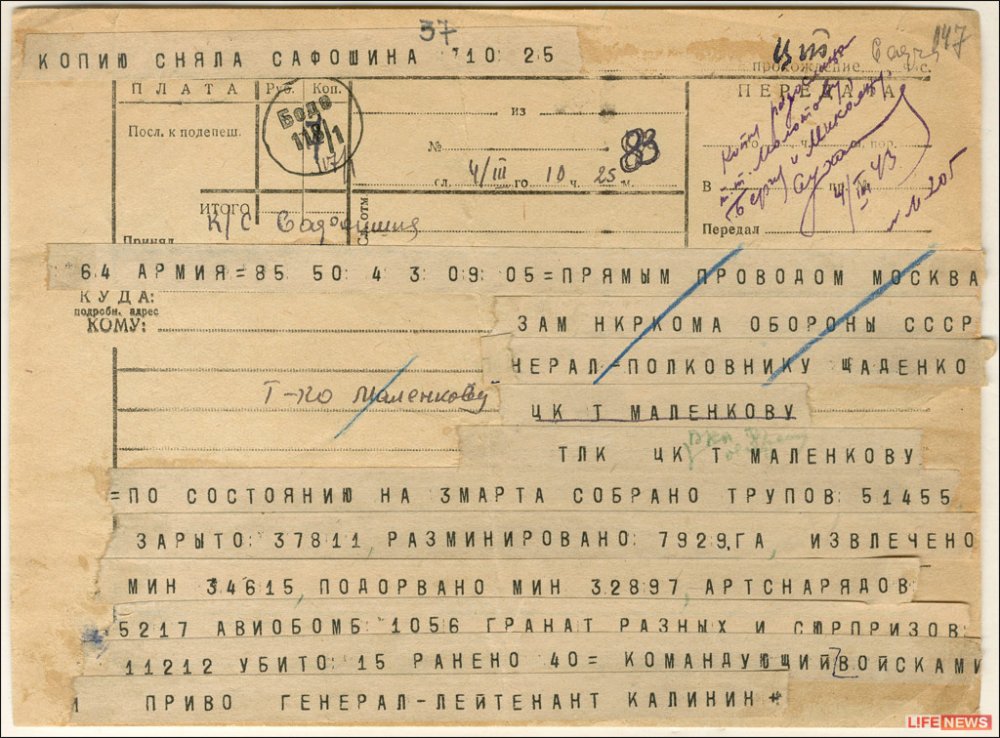 37
КОПИЮ СНЯЛА САФОШИНА 710 25
147
прохождение
ПЛАТА
Руб. Коп.
Бодо
118/1
из
ПЕРЕДАЧА
Посл. к подепеш.
№
83
сл. 4/III го 10 ч. 25 м.
Копии разосланы
т.т. Молотову,
Берия и Микояну
Сухан
4/III 43
ч. пор.
В
м-205
ИТОГО
К/С Сафошина
Принял
Сл. отм
Передал
64 АРМИЯ=85 50 4 3 09 05=ПРЯМЫМ ПРОВОДОМ МОСКВА
КУДА:
подробн. адрес
КОМУ:
ЗАМ НКРКОМА ОБОРОНЫ СССР
НЕРАЛ=ПОЛКОВНИКУ ЩАДЕНКО
Т-що Маленкову
ЦК Т МАЛЕНКОВУ
ТЛК ЦК Т МАЛЕНКОВУ
=ПО СОСТОЯНИЮ НА 3МАРТА СОБРАНО ТРУПОВ: 51455
ЗАРЫТО: 37811, РАЗМИНИРОВАНО: 7929,ГА, ИЗВЛЕЧЕНО
МИН 34615, ПОДОРВАНО МИН 32897, АРТСНАРЯДОВ
5217 АВИОБОМБ: 1056 ГРАНАТ РАЗНЫХ И СЮРПРИЗОВ:
11212 УБИТО: 15 РАНЕНО 40= КОМАНДУЮЩИЙ ВОЙСКАМИ
И ПРИВО ГЕНЕРАЛ-ЛЕЙТЕНАНТ КАЛИНИН+
L!FE NEWS